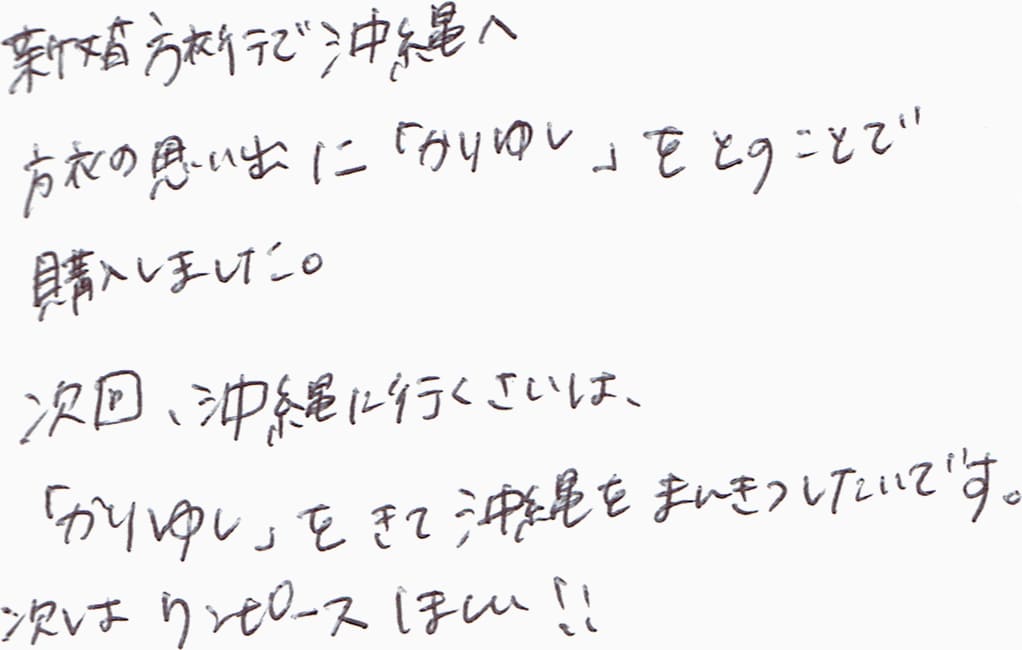 新婚旅行で沖縄へ
旅の思い出に「かりゆし」をとのことで
購入しました。
次回、沖縄に行くさいは、
「かりゆし」をきて沖縄をまんきつしたいです。
次は ワンピース ほしい!!